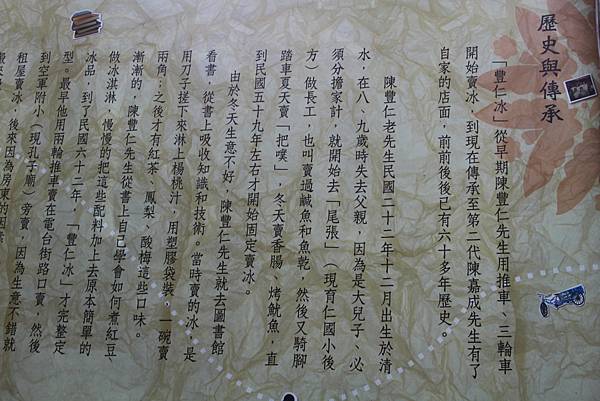 歷史與傳承
「豐仁冰」從早期陳豐仁先生用推車、三輪車
開始賣冰，到現在傳承至第二代陳嘉成先生有了
自家的店面，前前後後已有六十多年歷史。
陳豐仁老先生民國二十二年十二月出生於清
水，在八、九歲時失去父親，因為是大兒子、必
須分擔家計，就開始去「尾張」（現育仁國小後
方）做長工，也叫賣過鹹魚和魚乾，然後又騎腳
踏車夏天賣「把噗」，冬天賣香腸、烤魷魚，直
到民國五十九年左右才開始固定賣冰。
由於冬天生意不好，陳豐仁先生就去圖書館
看書，從書上吸收知識和技術。當時賣的冰，是
用刀子搓下來淋上楊桃汁，用塑膠袋裝，一碗賣
兩角；之後才有紅茶、鳳梨、酸梅這些口味。
漸漸的，陳豐仁先生從書上自己學會如何煮紅豆、
做冰淇淋，慢慢的把這些配料加上去原本簡單的
冰品，到了民國六十二年，「豐仁冰」才完整定
型。最早他用兩輪推車賣在電台街路口賣，然後
到空軍附小（現孔子廟）旁賣，因為生意不錯就
租屋賣冰，後來因為房東的因素